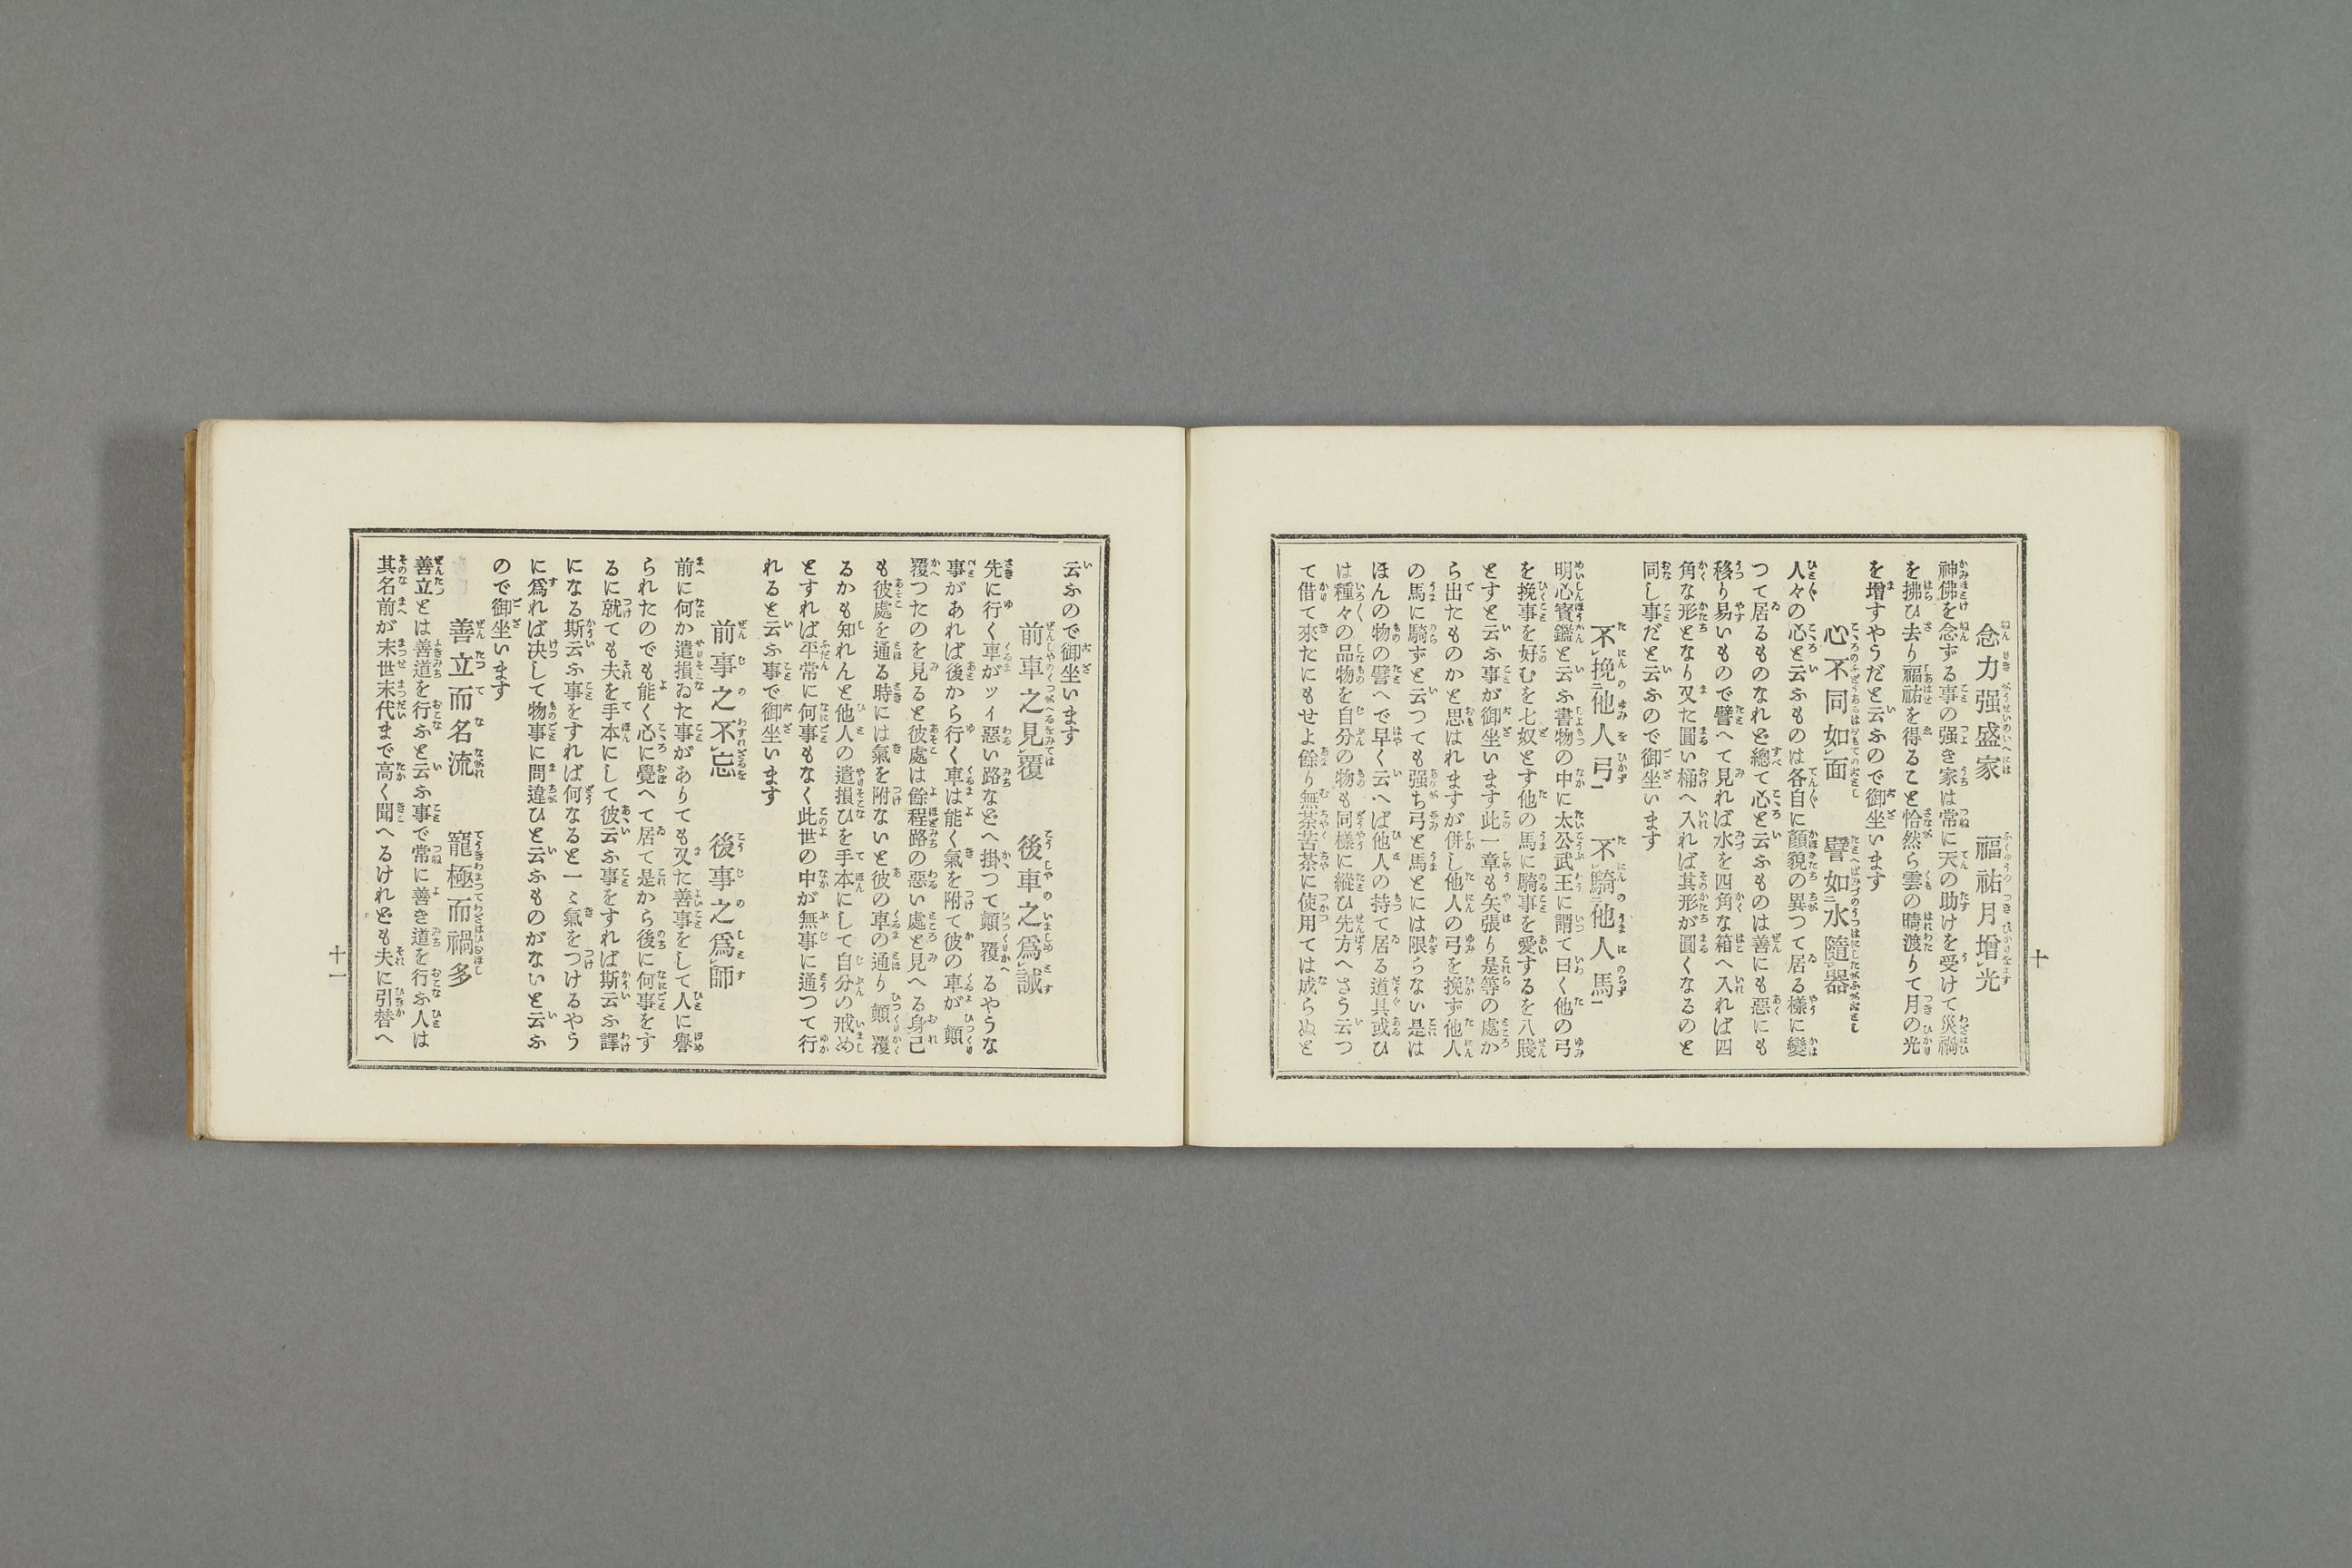 念力强盛家　福祐月增光
神佛を念ずる事の强き家は常に天の助けを受けて災禍
を拂ひ去り福祐を得ること恰然ら雲の晴渡りて月の光
を增すやうだと云ふので御坐います
心不同如面　譬如水隨器
人々の心と云ふものは各自に顏貌の異つて居る樣に變
つて居るものなれど總て心と云ふものは善にも惡にも
移り易いもので譬へて見れば水を四角な箱へ入れば四
角な形となり又た圓い桶へ入れば其形が圓くなるのと
同し事だと云ふので御坐います
不挽他人弓　不騎他人馬
明心寳鑑と云ふ書物の中に太公武王に謂て曰く他の弓
を挽事を好むを七奴とす他の馬に騎事を愛するを八賤
とすと云ふ事が御坐います此一章も矢張り是等の處か
ら出たものかと思はれますが併し他人の弓を挽ず他人
の馬に騎ずと云つても强ち弓と馬とには限らない是は
ほんの物の譬へで早く云へば他人の持て居る道具或ひ
は種々の品物を自分の物も同樣に縱ひ先方へさう云つ
て借て來たにもせよ餘り無茶苦茶に使用ては成らぬと
十
云ふので御坐います
前車之見覆　後車之爲誡
先に行く車がツイ惡い路などへ掛つて顛覆るやうな
事があれば後から行く車は能く氣を附て彼の車が顛
覆つたのを見ると彼處は餘程路の惡い處と見へる身己
も彼處を通る時には氣を附ないと彼の車の通り顛覆
るかも知れんと他人の遣損ひを手本にして自分の戒め
とすれば平常に何事もなく此世の中が無事に通つて行
れると云ふ事で御坐います
前事之不忘　後事之爲師
前に何か遣損ゐた事がありても又た善事をして人に譽
られたのでも能く心に覺へて居て是から後に何事をす
るに就ても夫を手本にして彼云ふ事をすれば斯云ふ譯
になる斯云ふ事をすれば何なると一々氣をつけるやう
に爲れば决して物事に間違ひと云ふものがないと云ふ
ので御坐います
善立而名流　寵極而禍多
善立とは善道を行ふと云ふ事で常に善き道を行ふ人は
其名前が末世末代まで高く聞へるけれども夫に引替へ
十一